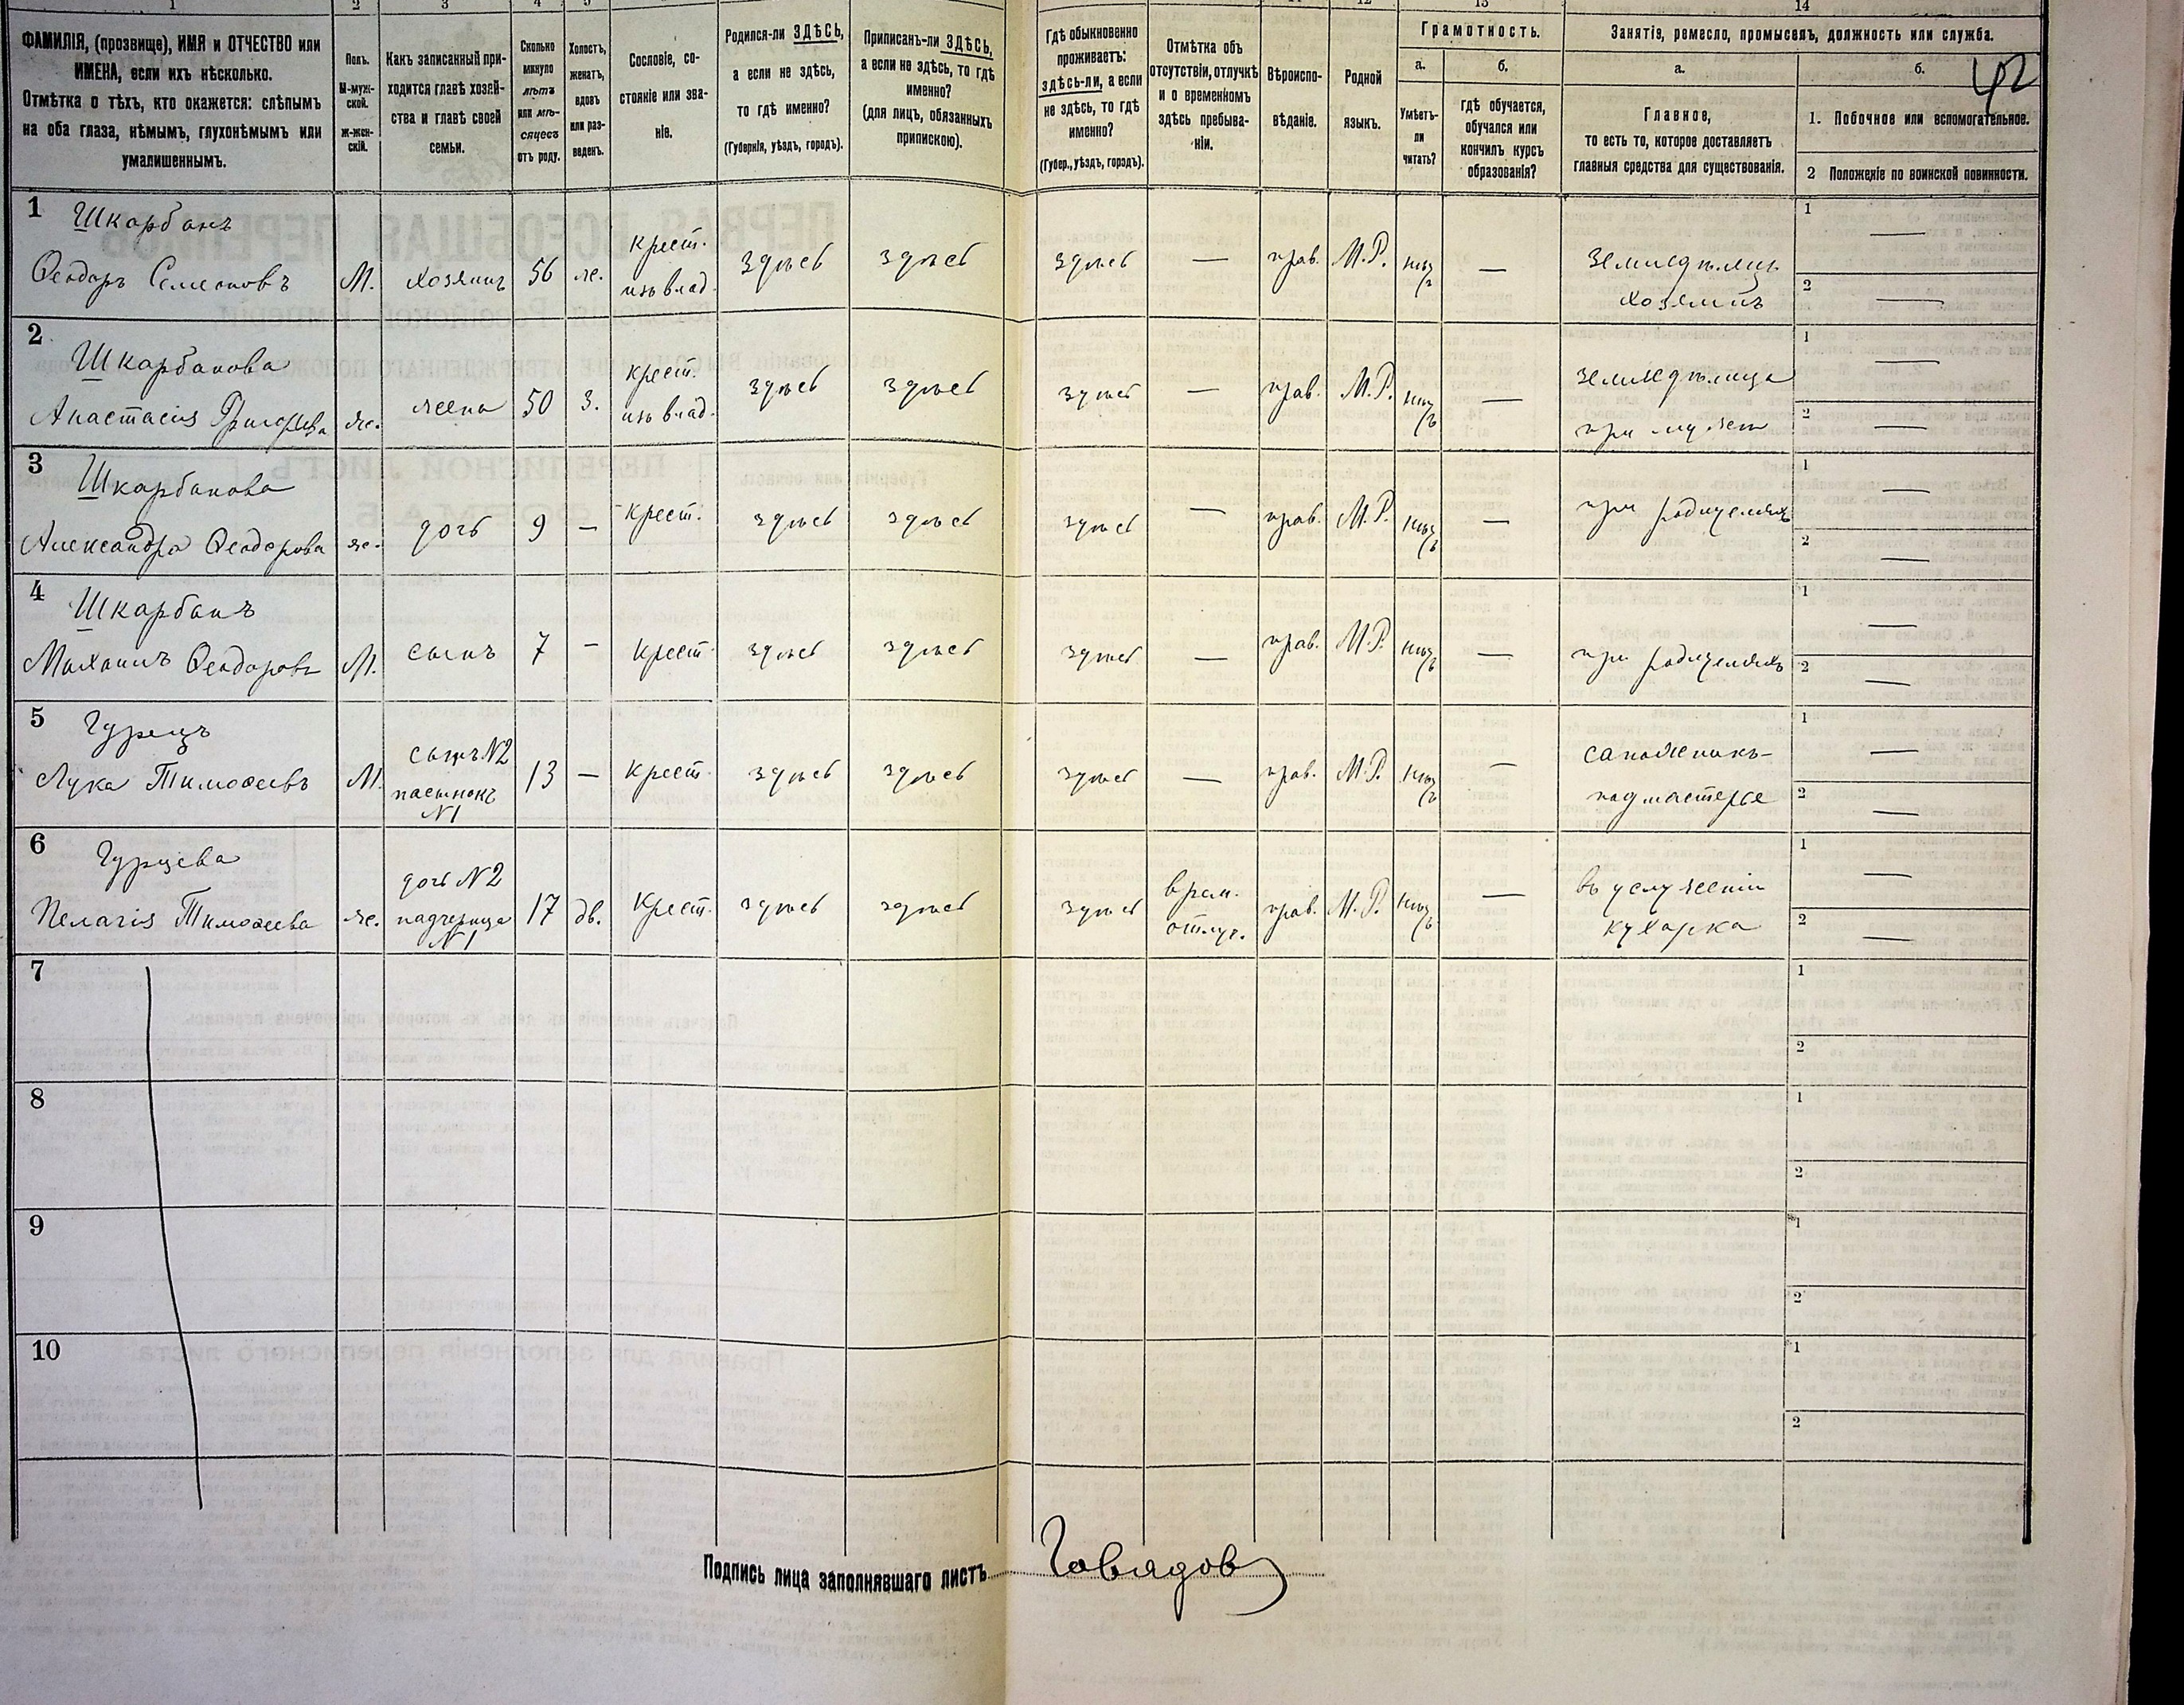 1 2 3 4 5 12 13 14
ФАМИЛІЯ, (прозвище), ИМЯ и ОТЧЕСТВО или
ИМЕНА, если ихъ нѣсколько.
Отмѣтка о тѣхъ, кто окажется: слѣпымъ
на оба глаза, нѣмымъ, глухонѣмымъ или
умалишеннымъ.
Полъ.
М-муж-
ской.
Ж-жен-
скій.
Какъ записанный при-
ходится главѣ хозяй-
ства и главѣ своей
семьи.
Сколько
минуло
лѣтъ
или мѣ-
сяцевъ
отъ роду.
Холостъ,
женатъ,
вдовъ
или раз-
веденъ.
Сословіе, со-
стояніе или зва-
ніе.
Родился-ли ЗДѢСЬ,
а если не здѣсь,
то гдѣ именно?
(Губернія, уѣздъ, городъ).
Приписанъ-ли ЗДѢСЬ,
а если не здѣсь, то гдѣ
именно?
(для лицъ, обязанныхъ
припискою).
Гдѣ обыкновенно
проживаетъ:
здѣсь-ли, а если
не здѣсь, то гдѣ
именно?
(Губер., уѣздъ, городъ).
Отмѣтка объ
отсутствіи, отлучкѣ
и о временномъ
здѣсь пребыва-
ніи.
Вѣроиспо-
вѣданіе.
Родной
языкъ.
Грамотность.
а.
Умѣетъ-
ли
читать?
б.
гдѣ обучается,
обучался или
кончилъ курсъ
образованія?
Занятіе, ремесло, промыселъ, должность или служба.
а.
Главное,
то есть то, которое доставляетъ
главныя средства для существованія.
б.
42
1. Побочное или вспомогательное.
2 Положеніе по воинской повинности.
1 Шкарбанъ
Ѳеодоръ Семеновъ М. хозяинъ 56 ж. крест. изъ влад. здѣсь здѣсь здѣсь — прав. М.Р. нѣтъ — земледѣлецъ хозяинъ 1 — 2 —
2 Шкарбанова
Анастасія Григорьева ж. жена 50 з. крест. изъ влад. здѣсь здѣсь здѣсь — прав. М.Р. нѣтъ — земледѣлица при мужѣ 1 — 2 —
3 Шкарбанова
Александра Ѳеодорова ж. дочь 9 — крест. здѣсь здѣсь здѣсь — прав. М.Р. нѣтъ — при родителяхъ 1 — 2 —
4 Шкарбанъ
Михаилъ Ѳеодоровъ М. сынъ 7 — крест. здѣсь здѣсь здѣсь — прав. М.Р. нѣтъ — при родителяхъ 1 — 2 —
5 Гурецъ
Лука Тимоѳеевъ М. сынъ N2 пасынокъ N1 13 — крест. здѣсь здѣсь здѣсь — прав. М.Р. нѣтъ — сапожникъ- подмастерье 1 — 2 —
6 Гурцева
Пелагія Тимоѳеева ж. дочь N2 падчерица N1 17 дв. крест. здѣсь здѣсь здѣсь врем. отлуч. прав. М.Р. нѣтъ — въ услуженіи кухарка 1 — 2 —
7 1 2
8 1 2
9 1 2
10 1 2
Подпись лица заполнявшаго листъ Говядов